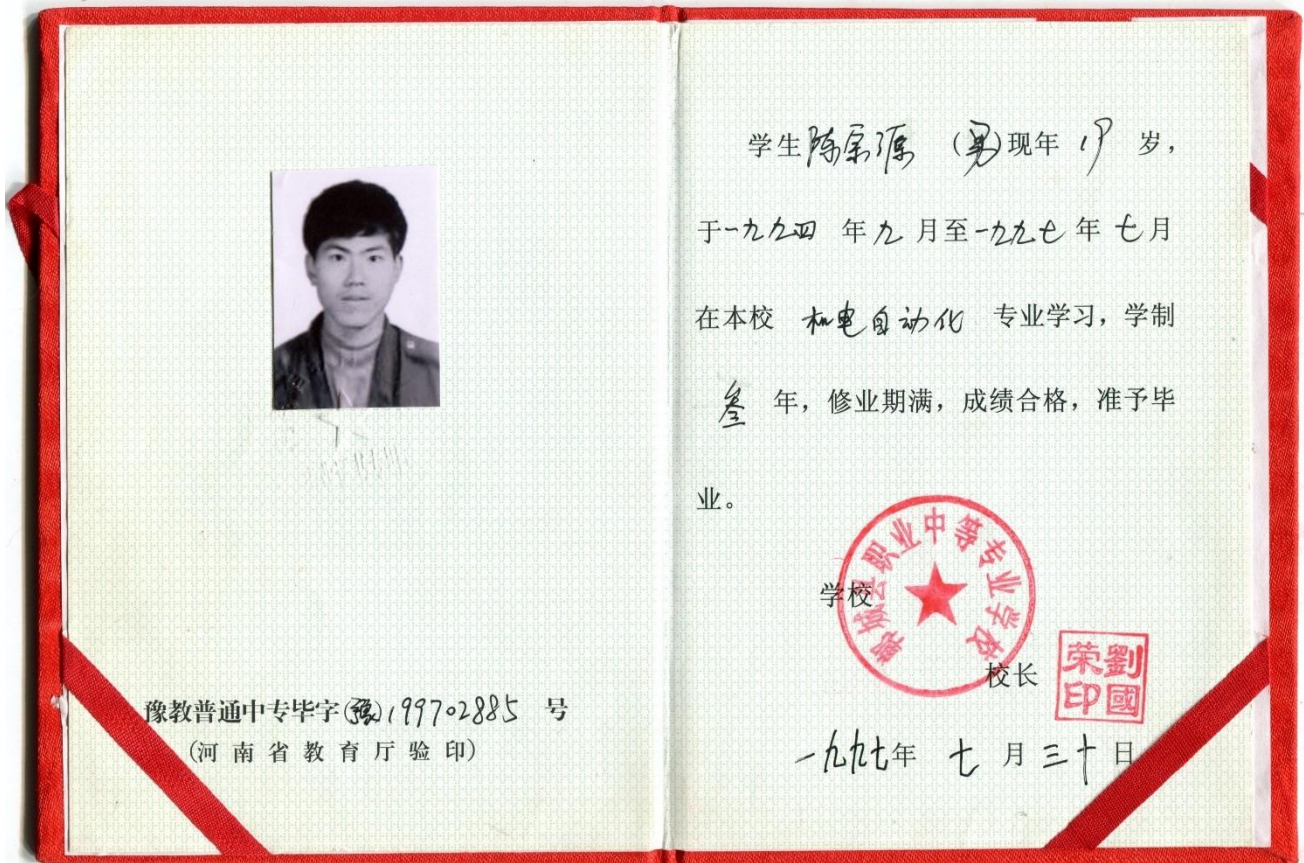 豫教普通中专毕字(豫)199702885 号
(河南省教育厅验印)
学生陈宗源 (男)现年 19 岁,
于一九九四 年九月至一九九七年七月
在本校 机电自动化 专业学习,学制
叁 年,修业期满,成绩合格,准予毕
业。
学校
郸城县职业中等专业学校
校长
劉國荣印
一九九七年 七 月三十日